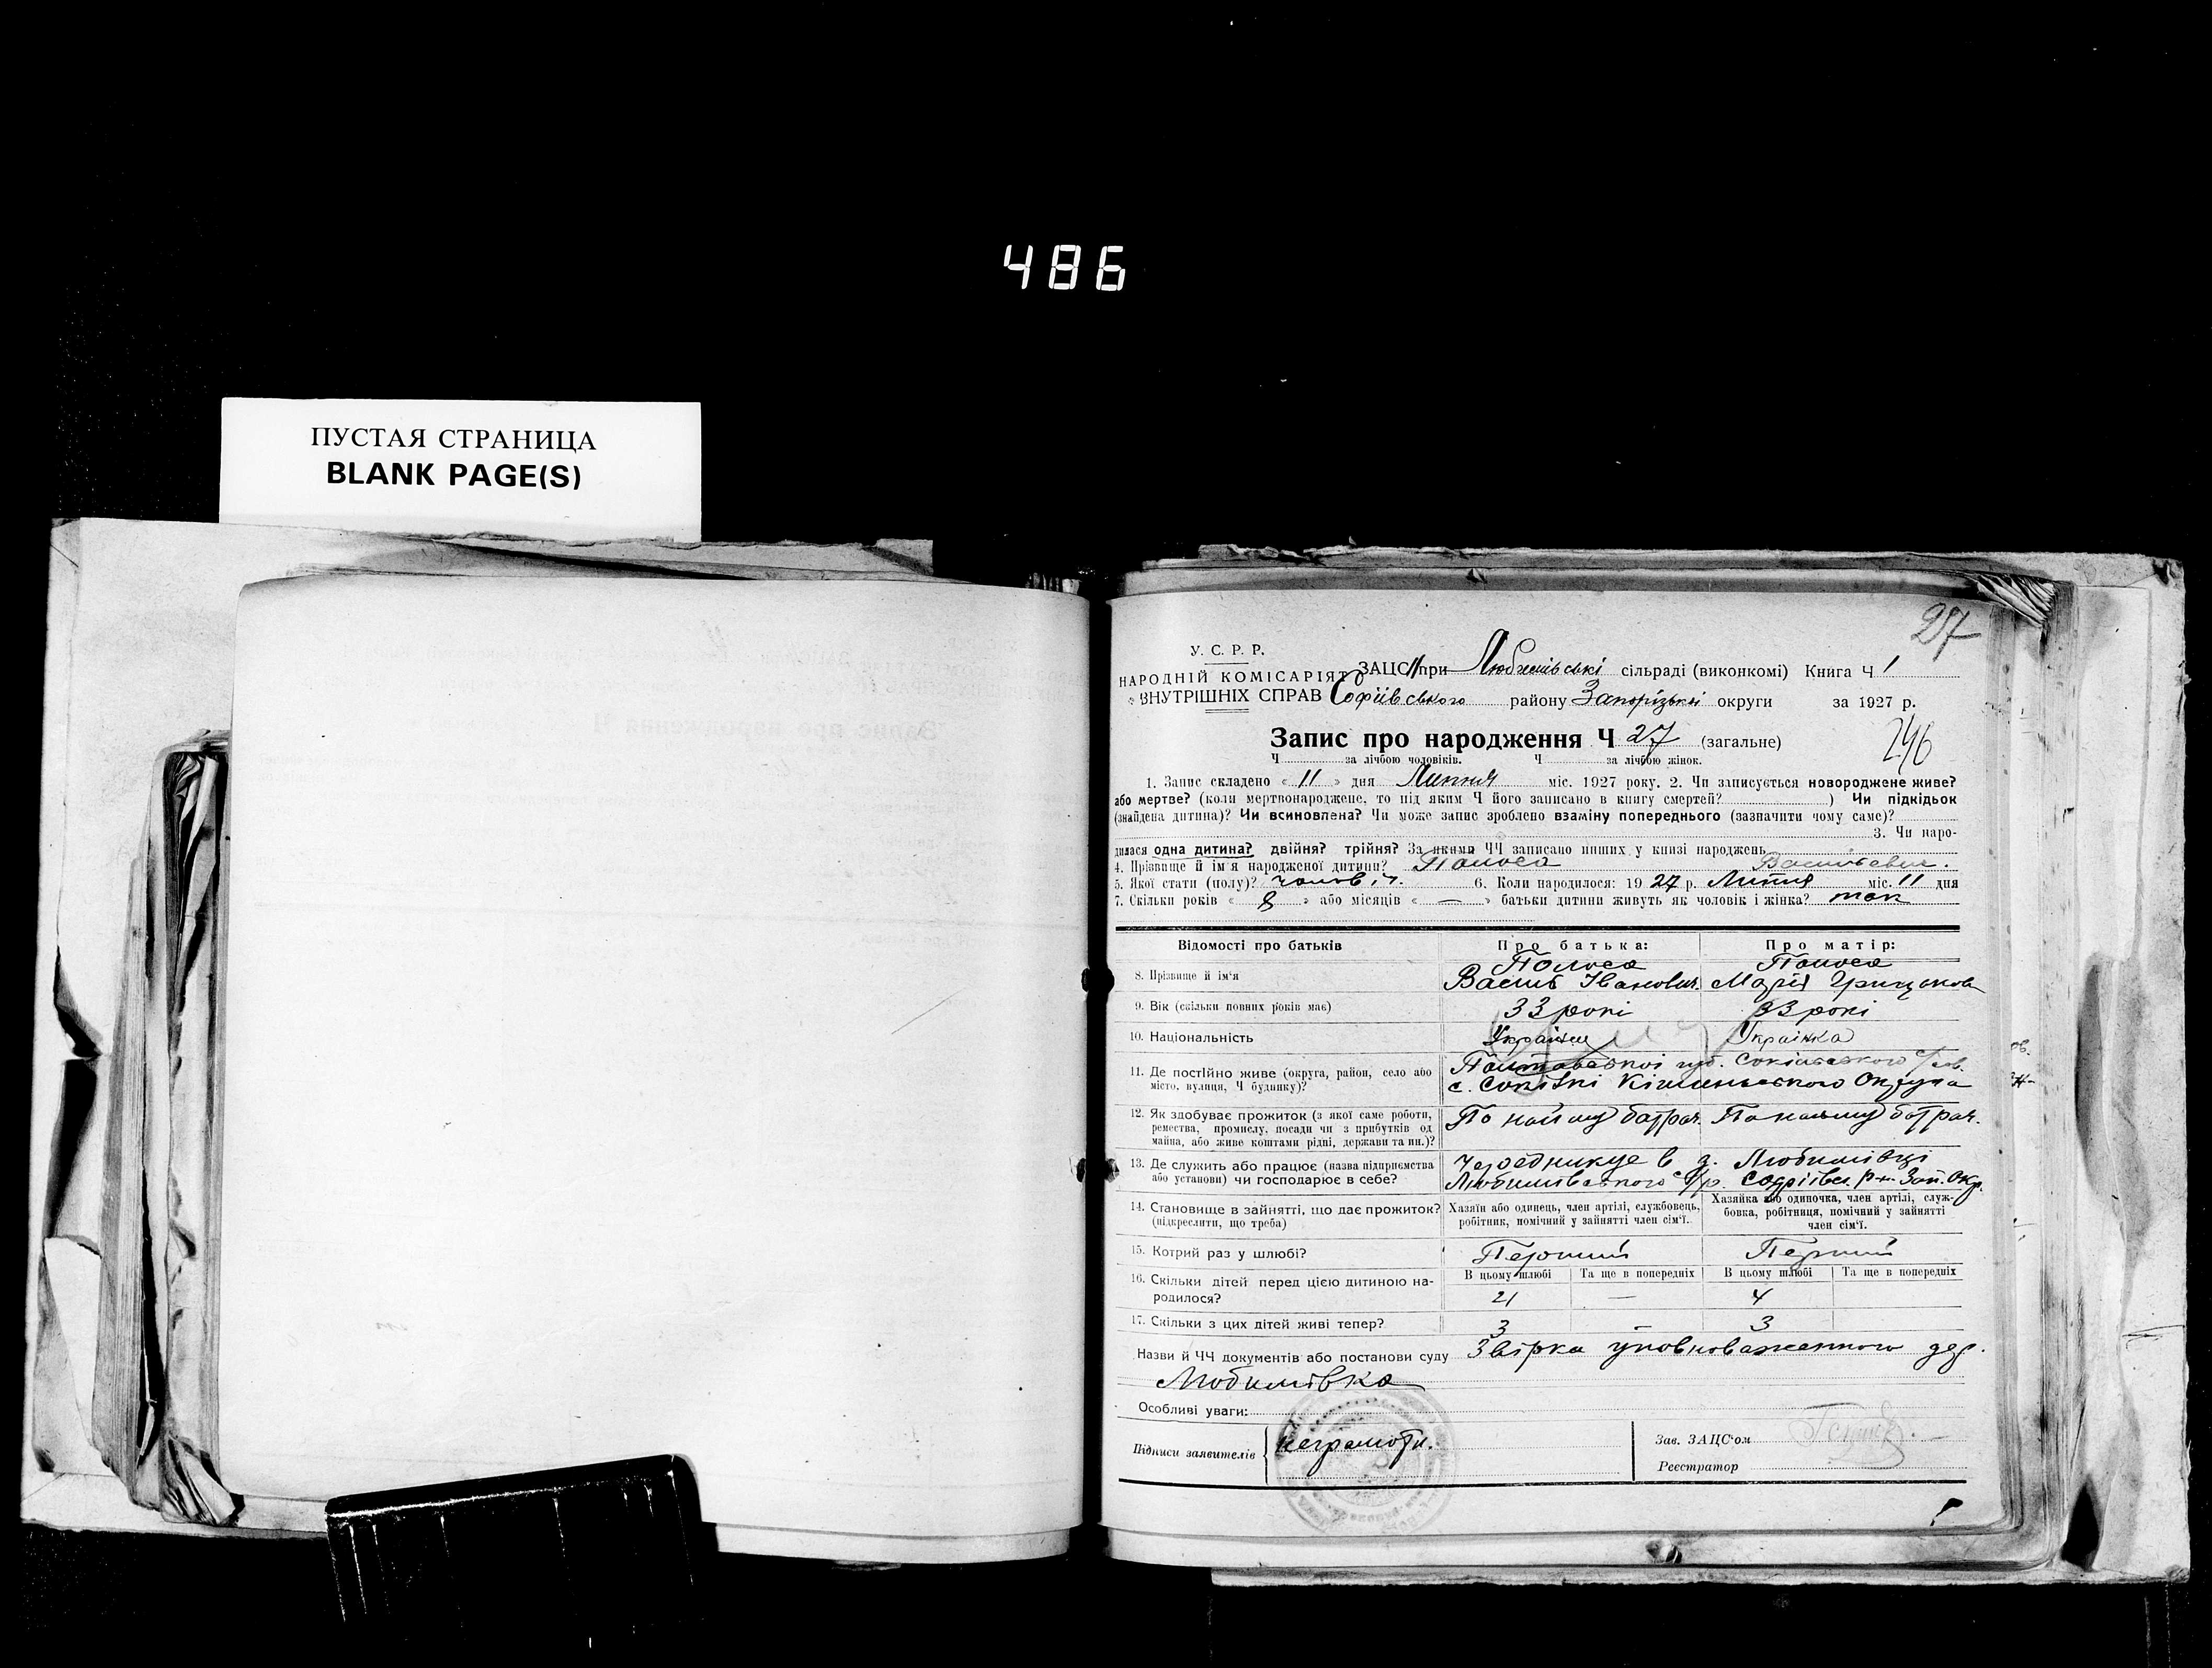 486
ПУСТАЯ СТРАНИЦА
BLANK PAGE(S)
27
У. С. Р. Р.
НАРОДНІЙ КОМІСАРІЯТ
ВНУТРІШНІХ СПРАВ
ЗАЦС при Любимівські сільраді (виконкомі) Книга Ч 1
Софіївського району Запорізької округи за 1927 р.
Запис про народження Ч 27 (загальне)
246
Ч за лічбою чоловіків. Ч за лічбою жінок.
1. Запис складено « 11 » дня Липня міс. 1927 року. 2. Чи записується новороджене живе?
або мертве? (коли мертвонароджене, то під яким Ч його записано в книгу смертей? ) Чи підкідьок
(знайдена дитина)? Чи всиновлена? Чи може запис зроблено взаміну попереднього (зазначити чому саме)?
3. Чи наро-
дилася одна дитина? двійня? трійня? За якими ЧЧ записано инших у книзі народжень
4. Прізвище й ім'я народженої дитини? Полоса
5. Якої стати (полу)? чоловіч. 6. Коли народилося: 1927 р. Липня міс. 11 дня
7. Скільки років « 8 » або місяців « — » батьки дитини живуть як чоловік і жінка? так
Відомості про батьків Про батька: Про матір:
8. Прізвище й ім'я Полоса Полоса
Василь Іванович Марія
9. Вік (скільки повних років має) 33 рокі 33 рокі
10. Національність Українец Українка
11. Де постійно живе (округа, район, село або
місто, вулиця, Ч будинку)?
Полтавської губ.
12. Як здобуває прожиток (з якої саме роботи,
ремества, промислу, посади чи з прибутків од
майна, або живе коштами рідні, держави та ин.)?
По найму батрач. По найму батрач.
13. Де служить або працює (назва підприємства
або установи) чи господарює в себе?
Чередникує в д. Любимівці
Любимівського с/р. Софіївськ. р-н. Зап. окр.
14. Становище в зайнятті, що дає прожиток?
(підкреслити, що треба)
Хазяїн або одинець, член артілі, службовець,
робітник, помічний у зайнятті член сім'ї.
Хазяйка або одиночка, член артілі, служ-
бовка, робітниця, помічний у зайнятті
член сім'ї.
15. Котрий раз у шлюбі? Перший Перший
16. Скільки дітей перед цією дитиною на-
родилося?
В цьому шлюбі Та ще в попередніх В цьому шлюбі Та ще в попередніх
4 — 4
17. Скільки з цих дітей живі тепер? 3 — 3
Назви й ЧЧ документів або постанови суду Звірка уповноваженного дер.
Любимівка
Особливі уваги:
Підписи заявителів неграмотн.
Зав. ЗАЦС'ом
Реєстратор